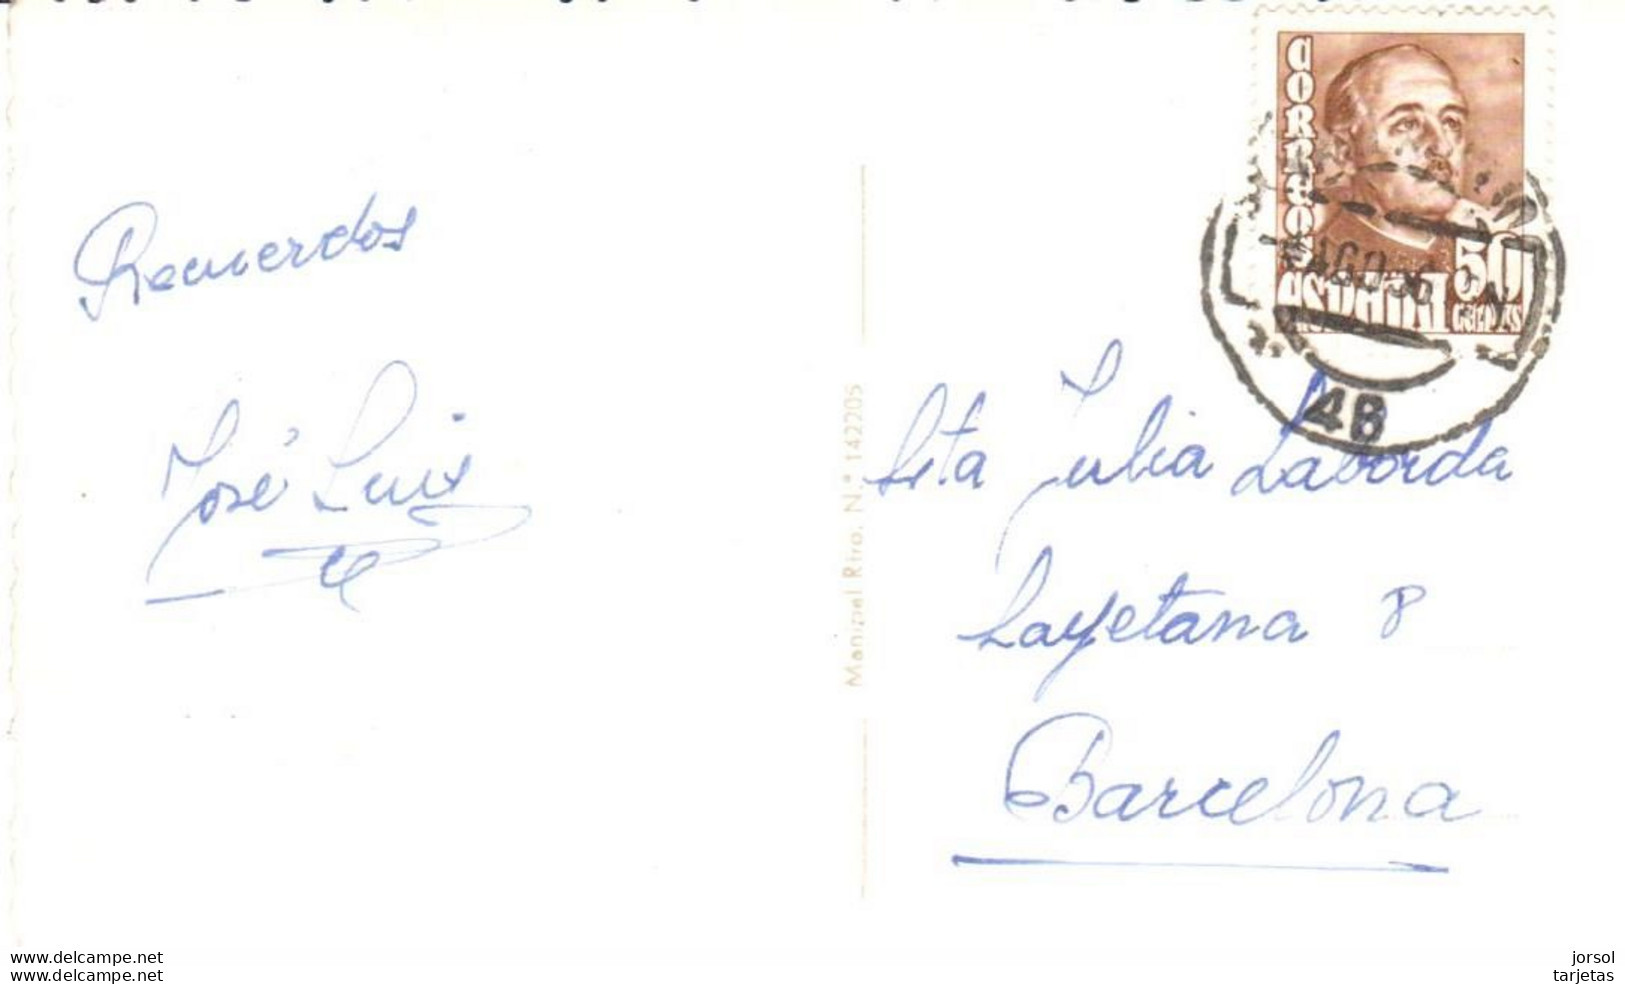 Recuerdos
José Luis
Manipel Riro. N.º 142205
CORREOS
ESPAÑA
50
CENTS
AGO 56
46
Srta Julia Laborda
Layetana 8
Barcelona
www.delcampe.net
www.delcampe.net
jorsol
tarjetas